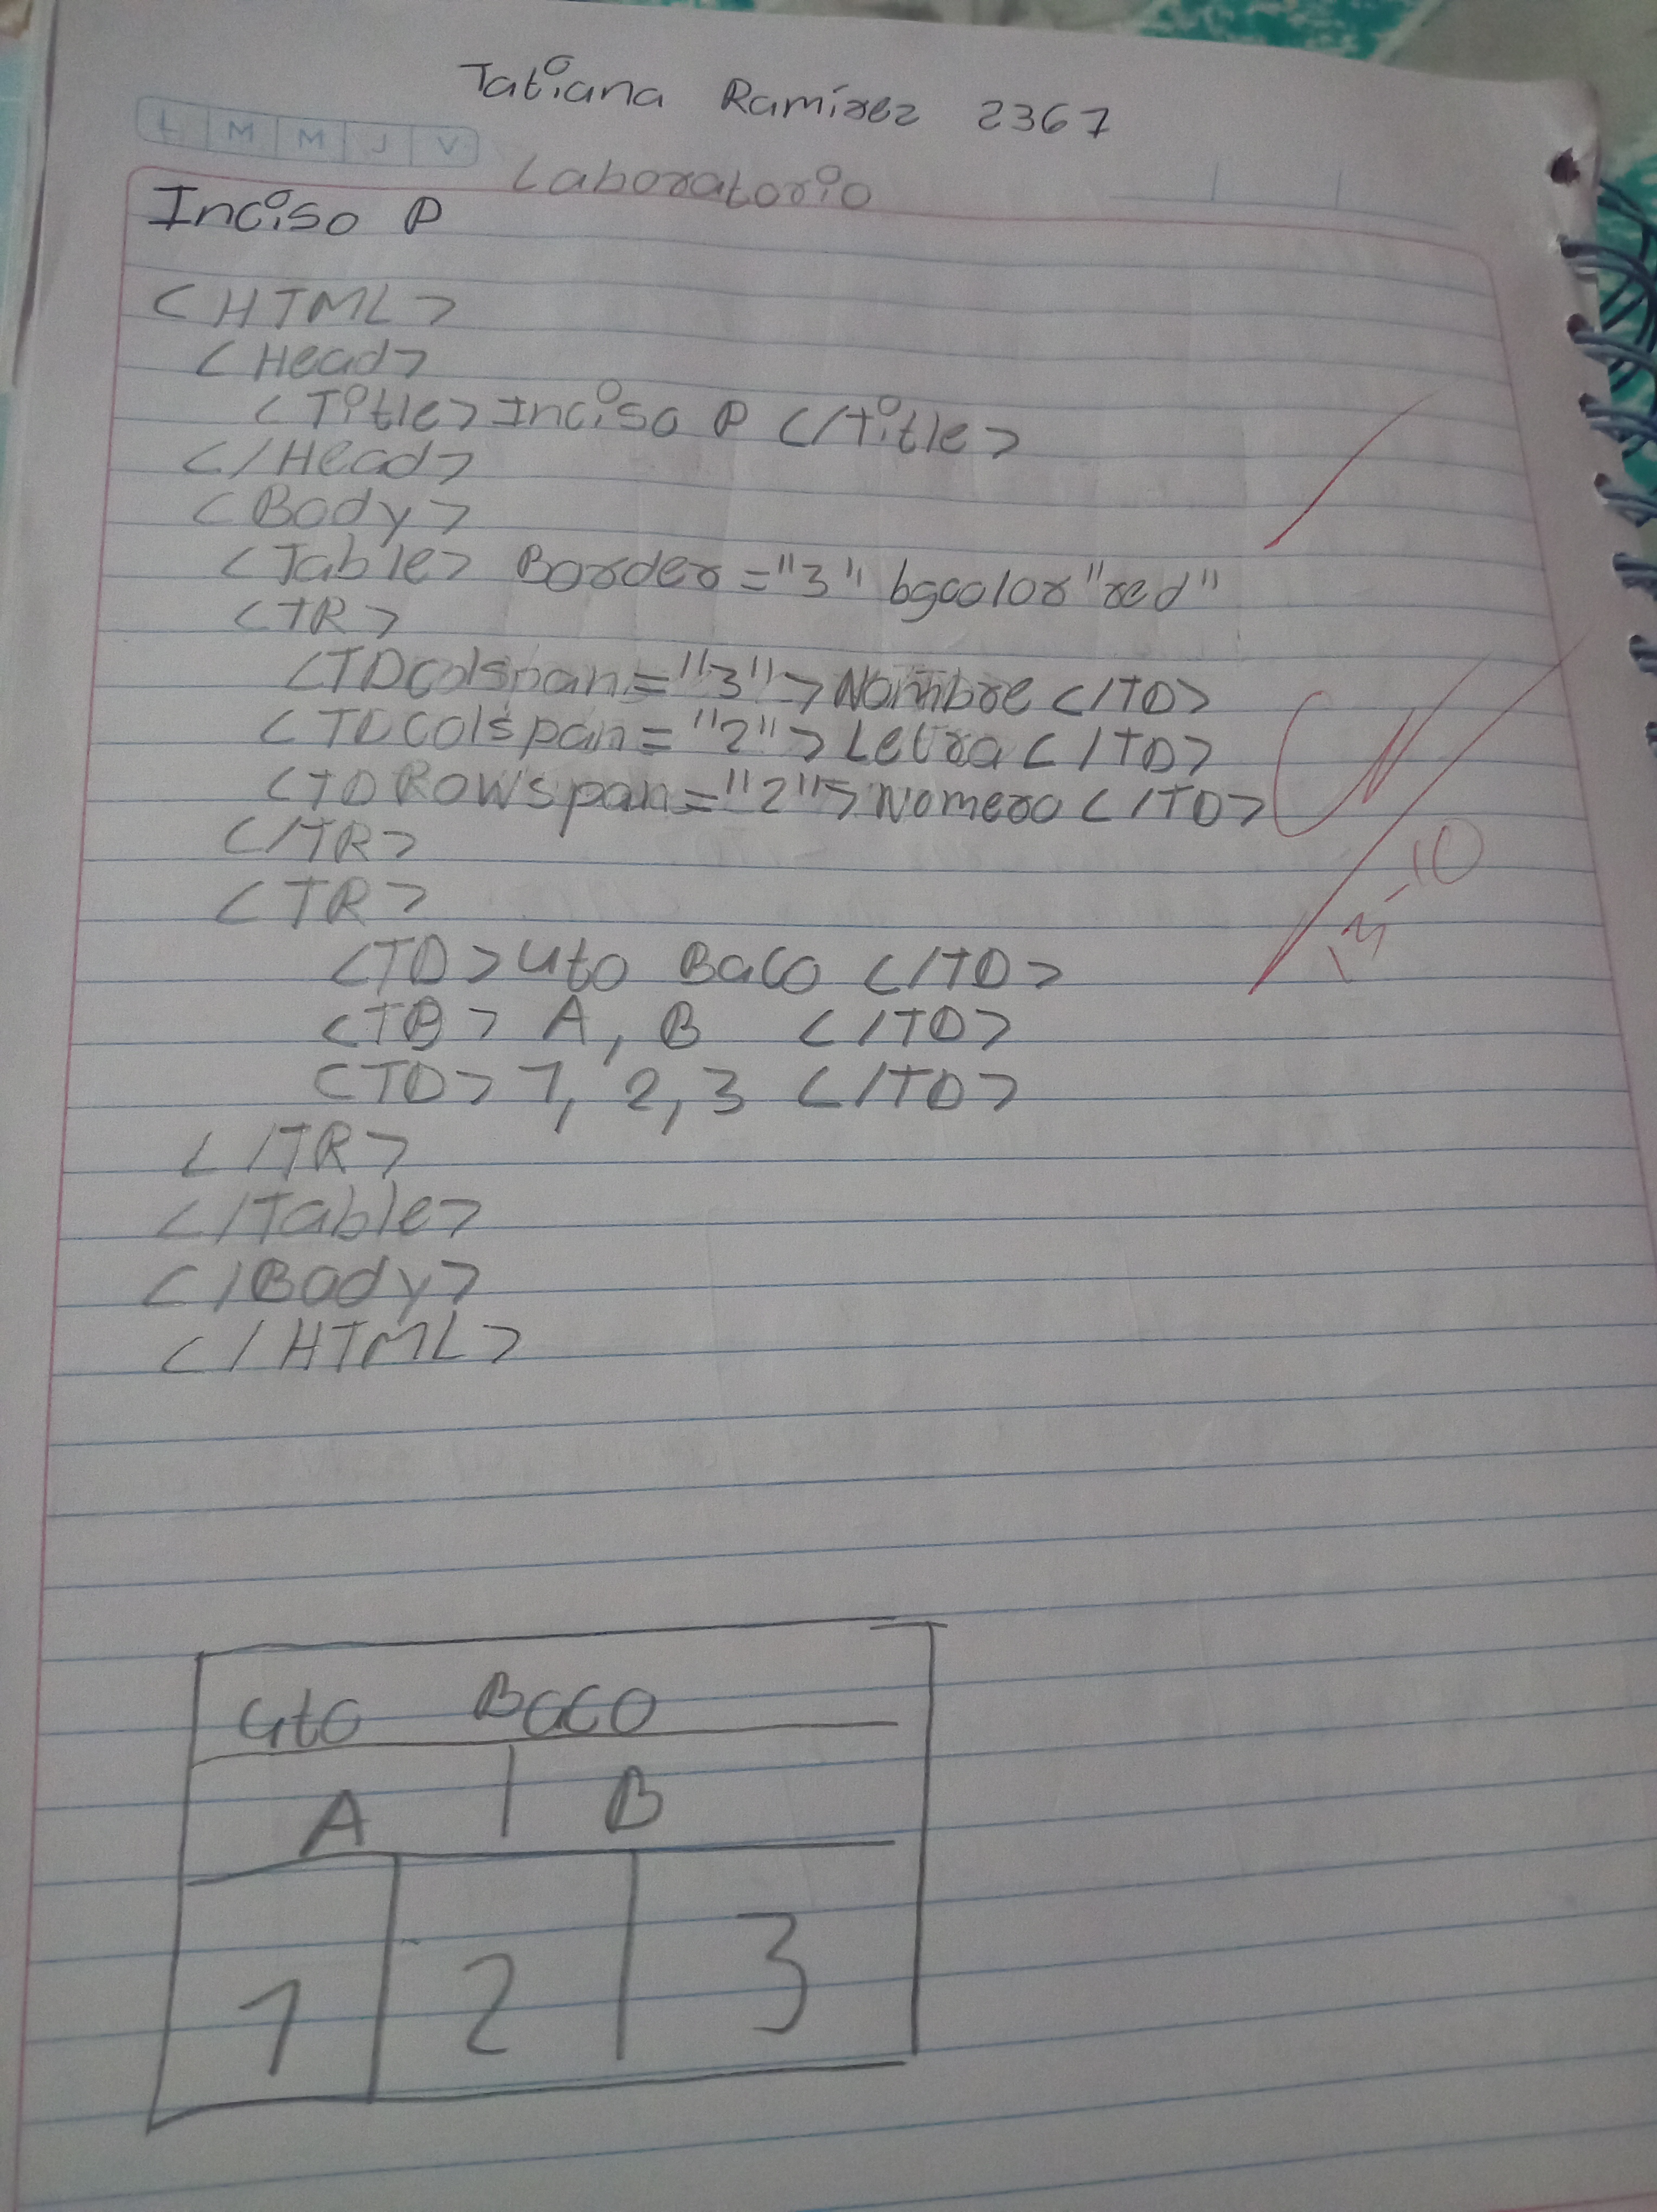 Tatiana Ramírez 2367
L M M J V
Laboratorio
Inciso P
<HTML>
<Head>
<Title> Inciso P </title>
</Head>
<Body>
<Table> Border="3" bgcolor"red"
<TR>
<TDcolspan="3">Nombre </TD>
<TDColspan="2"> Letra </TD>
<TDRowspan="2">Nomero </TD>
</TR>
<TR>
<TD> Gto Baco </TD>
<TB> A, B </TD>
<TD> 1, 2, 3 </TD>
</TR>
</Table>
</Body>
</HTML>
Gto Baco
A B
1 2 3